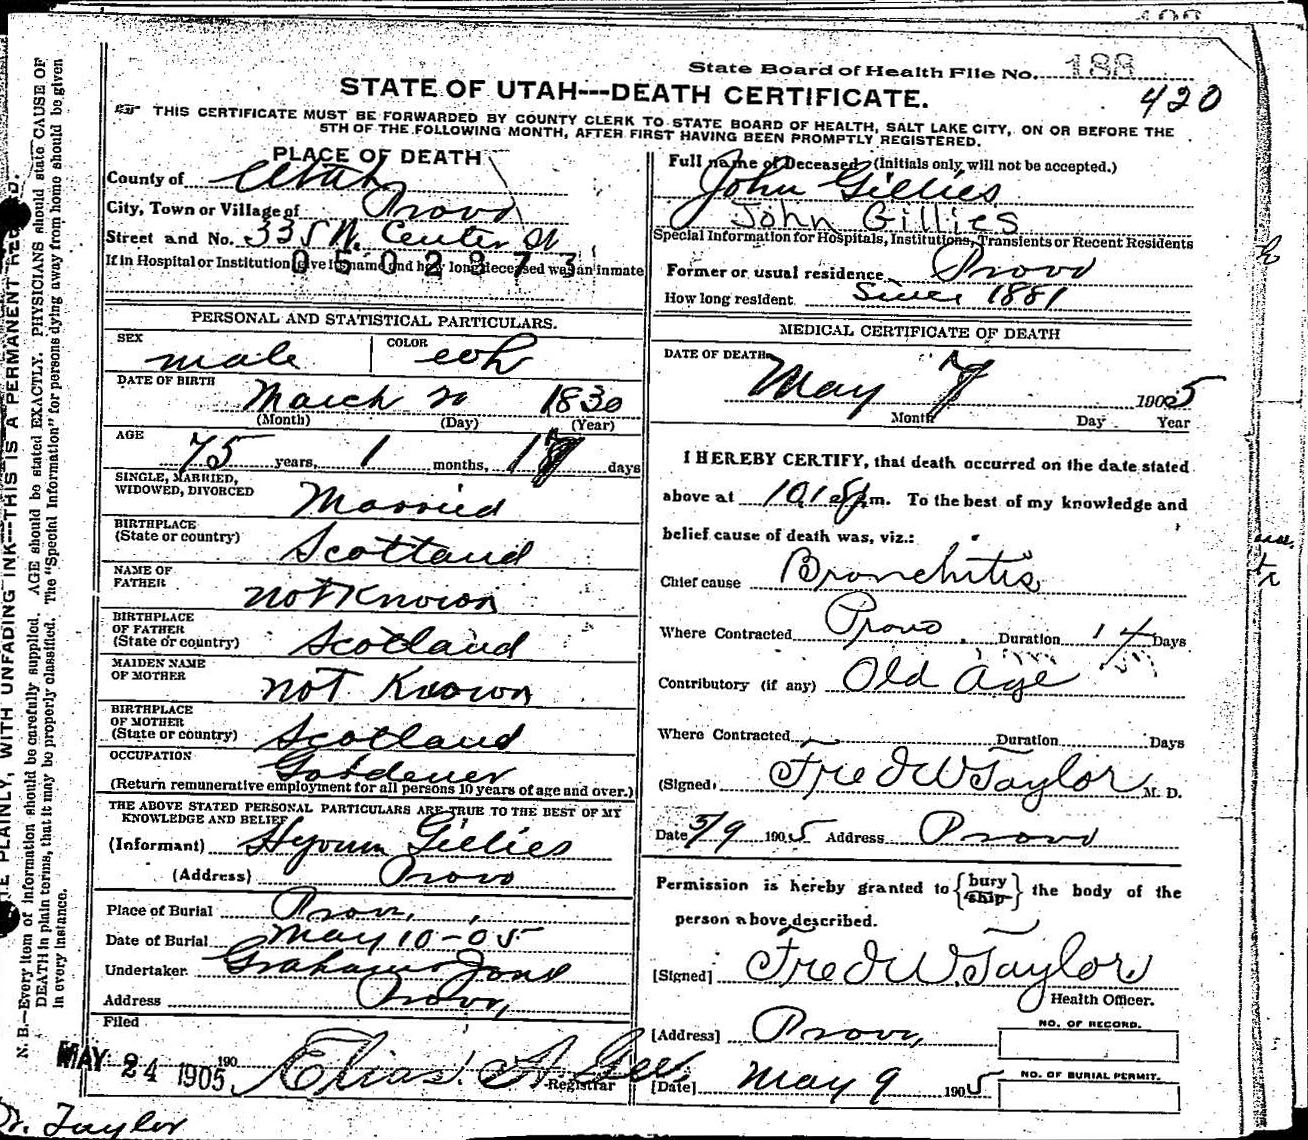 State Board of Health File No. 188
STATE OF UTAH---DEATH CERTIFICATE.
420
THIS CERTIFICATE MUST BE FORWARDED BY COUNTY CLERK TO STATE BOARD OF HEALTH, SALT LAKE CITY, ON OR BEFORE THE
5TH OF THE FOLLOWING MONTH, AFTER FIRST HAVING BEEN PROMPTLY REGISTERED.
PLACE OF DEATH
County of Utah
City, Town or Village of Provo
Street and No. 335 W. Center St
If in Hospital or Institution give its name and how long deceased was an inmate
0502973
Full name of Deceased (Initials only will not be accepted.)
John Gillies
John Gillies
Special Information for Hospitals, Institutions, Transients or Recent Residents
Former or usual residence Provo
How long resident Since 1881
PERSONAL AND STATISTICAL PARTICULARS.
SEX male COLOR wh
DATE OF BIRTH March 20 1830
(Month) (Day) (Year)
AGE 75 years, 1 months, 17 days
SINGLE, MARRIED,
WIDOWED, DIVORCED Married
BIRTHPLACE
(State or country) Scotland
NAME OF
FATHER not Known
BIRTHPLACE
OF FATHER
(State or country) Scotland
MAIDEN NAME
OF MOTHER not Known
BIRTHPLACE
OF MOTHER
(State or country) Scotland
OCCUPATION Gardener
(Return remunerative employment for all persons 10 years of age and over.)
THE ABOVE STATED PERSONAL PARTICULARS ARE TRUE TO THE BEST OF MY
KNOWLEDGE AND BELIEF
(Informant) Hyrum Gillies
(Address) Provo
Place of Burial Provo,
Date of Burial May 10-05
Undertaker Graham Jone
Address Provo,
Filed
MAY 24 1905 190 Elias A. Gee
Registrar
MEDICAL CERTIFICATE OF DEATH
DATE OF DEATH May 7 1905
Month Day Year
I HEREBY CERTIFY, that death occurred on the date stated
above at 10,15 p m. To the best of my knowledge and
belief cause of death was, viz.:
Chief cause Bronchitis
Where Contracted Provo. Duration 14 Days
Contributory (if any) Old Age
Where Contracted Duration Days
(Signed) Fred W Taylor M. D.
Date 5/9 1905 Address Provo
Permission is hereby granted to {bury ship} the body of the
person above described.
[Signed] Fred W. Taylor
Health Officer.
[Address] Provo,
NO. OF RECORD.
[Date] May 9 1905
NO. OF BURIAL PERMIT.
Dr. Taylor
PLAINLY, WITH UNFADING INK---THIS IS A PERMANENT
N. B.—Every item of information should be carefully supplied. AGE should be stated EXACTLY. PHYSICIANS should state CAUSE OF
DEATH in plain terms, that it may be properly classified. The "Special Information" for persons dying away from home should be given
in every instance.